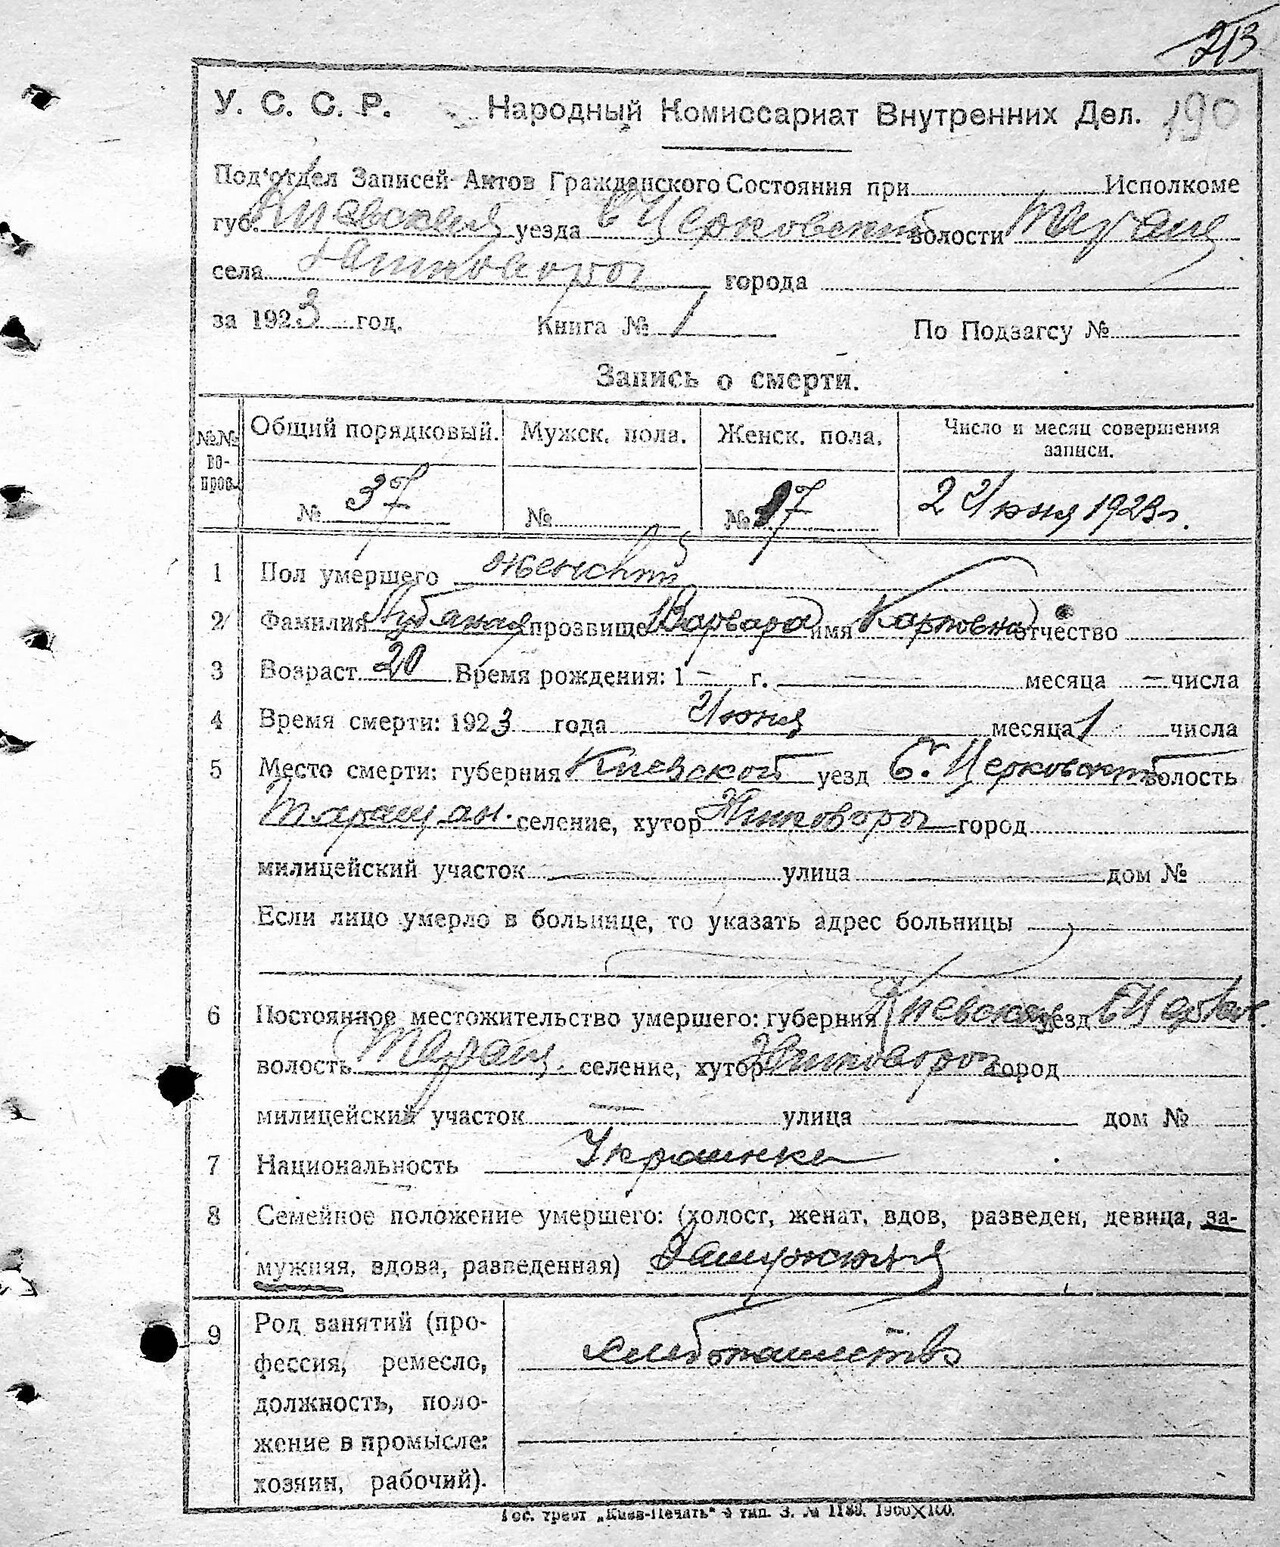 213
У. С. С. Р. Народный Комиссариат Внутренних Дел. 190
Под'отдел Записей Актов Гражданского Состояния при Исполкоме
губ. Киевская уезда Б Церковский волости Тараще
села города
за 1923 год. Книга № 1 По Подзагсу №
Запись о смерти.
№№ вопров. Общий порядковый. Мужск. пола. Женск. пола. Число и месяц совершения записи.
№ 37 № № 17 2 Июня 1923 г.
1 Пол умершего женский
2 Фамилия прозвище Варвара имя Карповна отчество
3 Возраст 20 Время рождения: 1 — г. — месяца — числа
4 Время смерти: 1923 года Июня месяца 1 числа
5 Место смерти: губерния Киевской уезд Б. Церковский волость
Таращан. селение, хутор город
милицейский участок — улица — дом №
Если лицо умерло в больнице, то указать адрес больницы
6 Постоянное местожительство умершего: губерния Киевская уезд Б Церков.
волость Таращ. селение, хутор город
милицейский участок — улица — дом №
7 Национальность Украинка
8 Семейное положение умершего: (холост, женат, вдов, разведен, девица, за-
мужняя, вдова, разведенная) Замужняя
9 Род занятий (про-
фессия, ремесло, хлебопашество
должность, поло-
жение в промысле:
хозяин, рабочий).
Гос. трест „Киев-Печать“ тип. 3. № 1188. 1900×100.